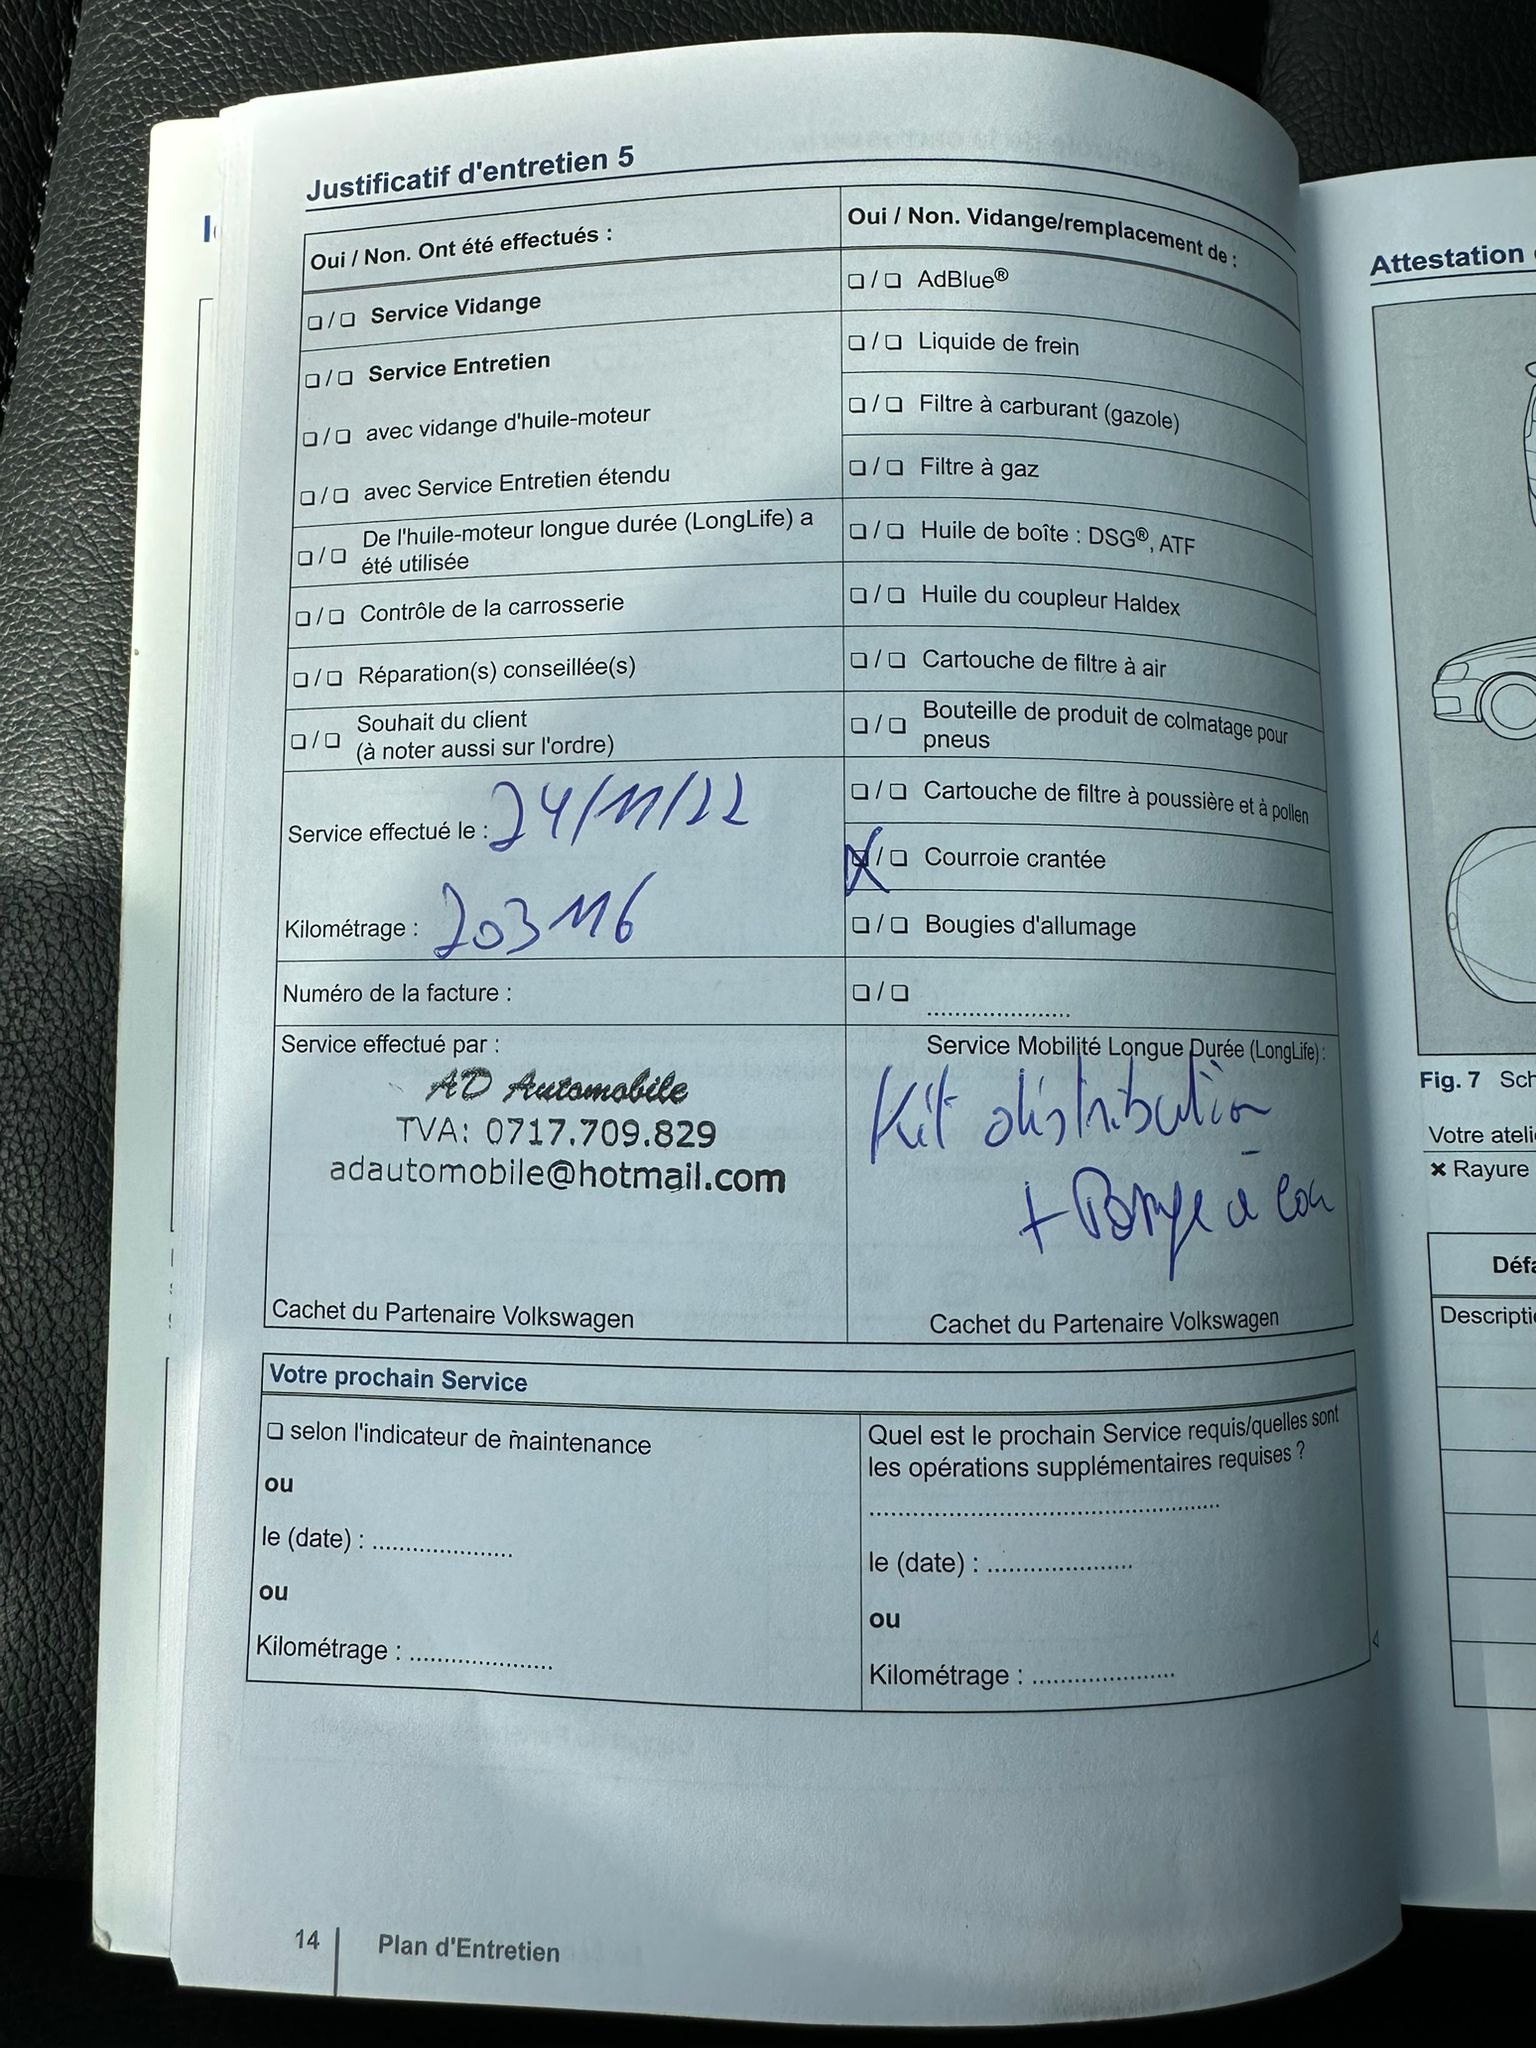 Justificatif d'entretien 5
Oui / Non. Ont été effectués :
❑ / ❑ Service Vidange
❑ / ❑ Service Entretien
❑ / ❑ avec vidange d'huile-moteur
❑ / ❑ avec Service Entretien étendu
❑ / ❑ De l'huile-moteur longue durée (LongLife) a
été utilisée
❑ / ❑ Contrôle de la carrosserie
❑ / ❑ Réparation(s) conseillée(s)
❑ / ❑ Souhait du client
(à noter aussi sur l'ordre)
Service effectué le : 24/11/22
Kilométrage : 203116
Numéro de la facture :
Service effectué par :
AD Automobile
TVA: 0717.709.829
adautomobile@hotmail.com
Cachet du Partenaire Volkswagen
Oui / Non. Vidange/remplacement de :
❑ / ❑ AdBlue®
❑ / ❑ Liquide de frein
❑ / ❑ Filtre à carburant (gazole)
❑ / ❑ Filtre à gaz
❑ / ❑ Huile de boîte : DSG®, ATF
❑ / ❑ Huile du coupleur Haldex
❑ / ❑ Cartouche de filtre à air
❑ / ❑ Bouteille de produit de colmatage pour
pneus
❑ / ❑ Cartouche de filtre à poussière et à pollen
X / ❑ Courroie crantée
❑ / ❑ Bougies d'allumage
❑ / ❑ .....................
Service Mobilité Longue Durée (LongLife) :
Kit distribution
+ Pompe à eau
Cachet du Partenaire Volkswagen
Votre prochain Service
❑ selon l'indicateur de maintenance
ou
le (date) : .....................
ou
Kilométrage : .....................
Quel est le prochain Service requis/quelles sont
les opérations supplémentaires requises ?
....................................................
le (date) : .....................
ou
Kilométrage : .....................
14 Plan d'Entretien
Attestation
Fig. 7 Sch
Votre ateli
✖ Rayure
Défa
Descripti